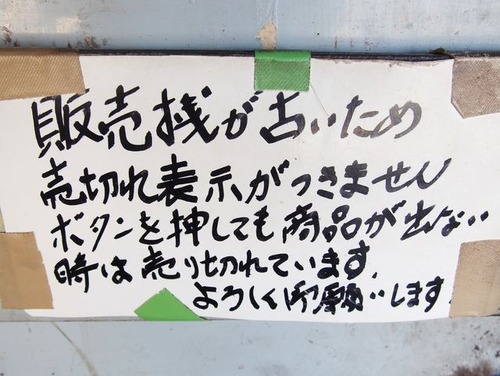 販売機が古いため
売切れ表示がつきません
ボタンを押しても商品が出ない
時は売り切れています。
よろしく御願いします。